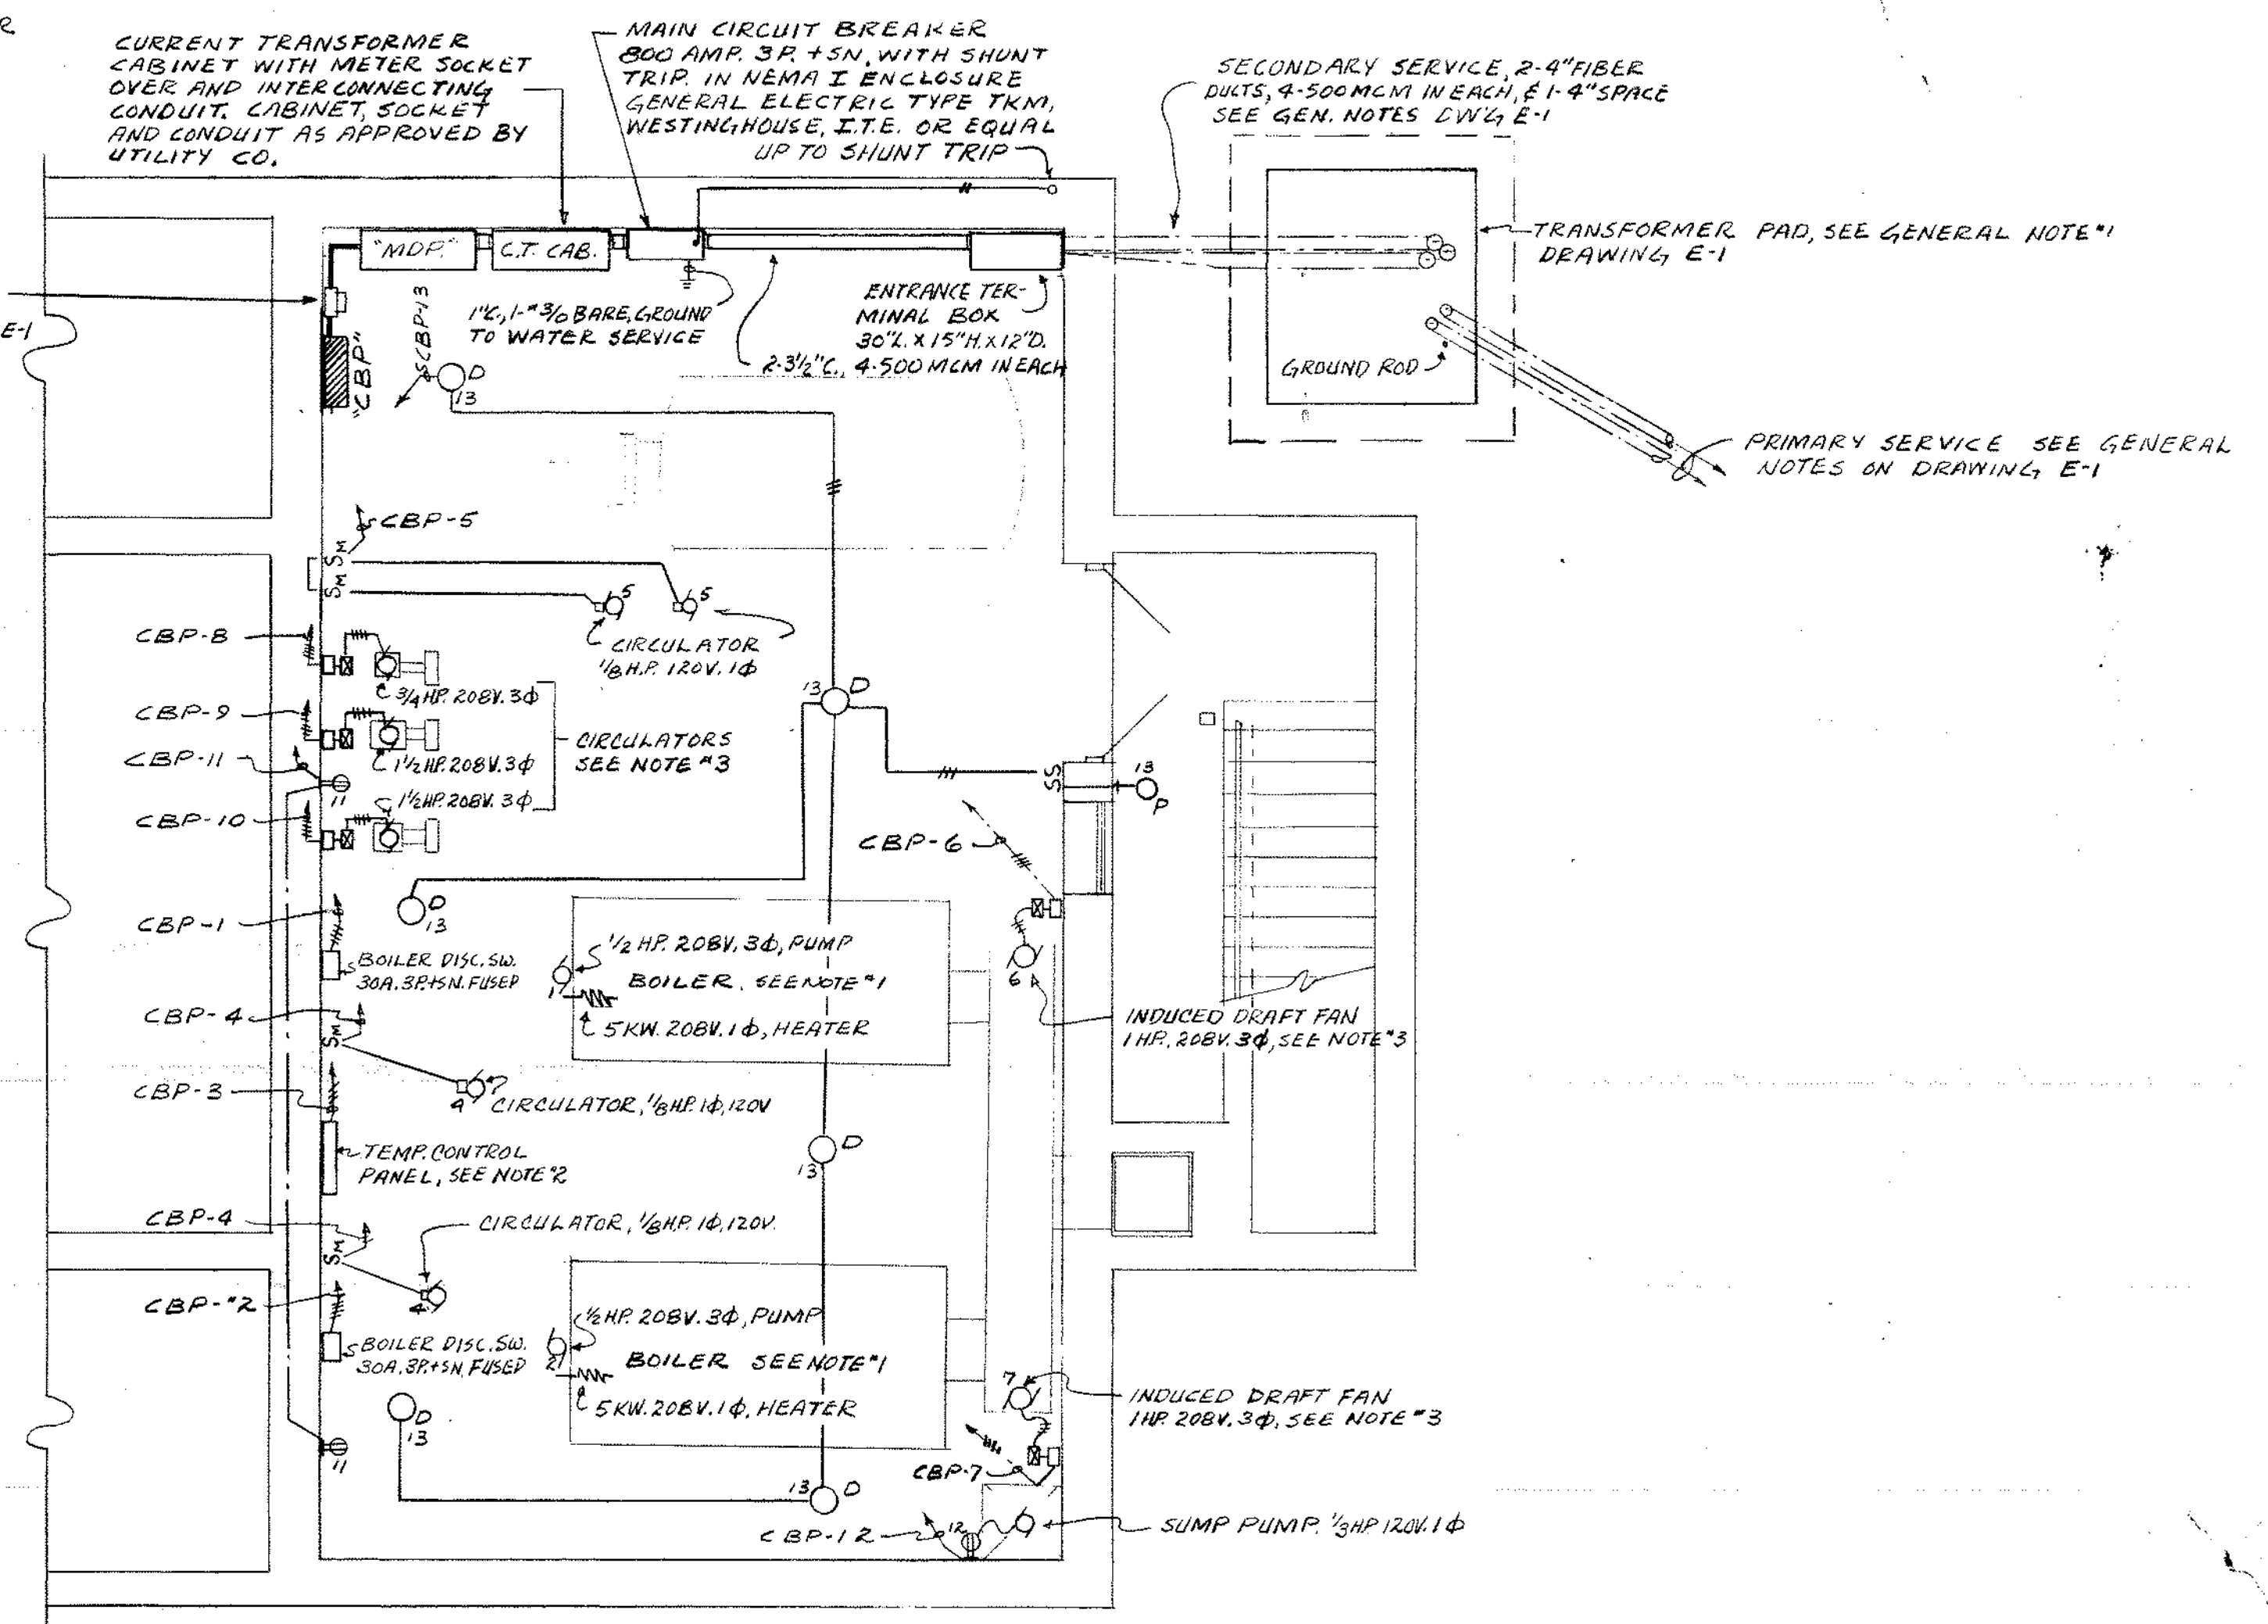 R
CURRENT TRANSFORMER
CABINET WITH METER SOCKET
OVER AND INTERCONNECTING
CONDUIT. CABINET, SOCKET
AND CONDUIT AS APPROVED BY
UTILITY CO.
MAIN CIRCUIT BREAKER
800 AMP. 3P. + SN. WITH SHUNT
TRIP. IN NEMA I ENCLOSURE
GENERAL ELECTRIC TYPE TKM,
WESTINGHOUSE, I.T.E. OR EQUAL
UP TO SHUNT TRIP
SECONDARY SERVICE, 2-4" FIBER
DUCTS, 4-500 MCM IN EACH, & 1-4" SPACE
SEE GEN. NOTES DWG E-1
TRANSFORMER PAD, SEE GENERAL NOTE #1
DRAWING E-1
"MDP."
C.T. CAB.
E-1
"CBP"
CBP-13
D
13
1"C., 1-#3/0 BARE, GROUND
TO WATER SERVICE
ENTRANCE TER-
MINAL BOX
30"L. X 15"H. X 12"D.
2-3 1/2"C., 4-500 MCM IN EACH
GROUND ROD
PRIMARY SERVICE SEE GENERAL
NOTES ON DRAWING E-1
CBP-5
SM
SM
5
5
CIRCULATOR
1/8 H.P. 120V. 1Φ
CBP-8
3/4 HP. 208V. 3Φ
CBP-9
1 1/2 HP. 208V. 3Φ
CIRCULATORS
SEE NOTE #3
CBP-11
11
1 1/2 HP. 208V. 3Φ
CBP-10
13
D
SS
13
P
CBP-6
CBP-1
D
13
BOILER DISC. SW.
30A. 3P.+SN. FUSED
1/2 HP. 208V. 3Φ, PUMP
1
BOILER. SEE NOTE #1
5 KW. 208V. 1Φ, HEATER
6
INDUCED DRAFT FAN
1 HP. 208V. 3Φ, SEE NOTE #3
CBP-4
SM
4
CIRCULATOR, 1/8 HP. 1Φ, 120V
CBP-3
TEMP. CONTROL
PANEL, SEE NOTE #2
D
13
CBP-4
SM
CIRCULATOR, 1/8 HP. 1Φ, 120V.
4
CBP-#2
BOILER DISC. SW.
30A. 3P.+SN. FUSED
1/2 HP. 208V. 3Φ, PUMP
2
BOILER SEE NOTE #1
5 KW. 208V. 1Φ, HEATER
7
INDUCED DRAFT FAN
1 HP. 208V. 3Φ, SEE NOTE #3
D
13
11
CBP-7
13
D
CBP-12
12
SUMP PUMP. 1/3 HP 120V. 1Φ